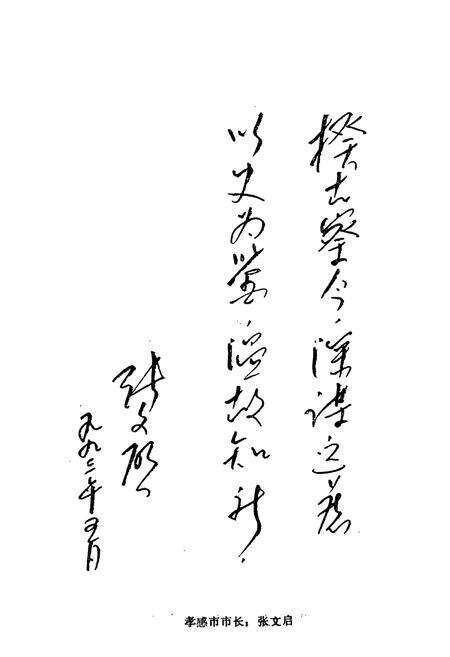 揆古察今，深谋远虑
以史为鉴，温故知新。
张文启
一九九二年五月
孝感市市长：张文启